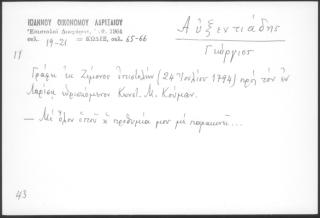 ΙΩΑΝΝΟΥ ΟΙΚΟΝΟΜΟΥ ΛΑΡΙΣΑΙΟΥ
Ἐπιστολαὶ Διαφόρων, 1964
σελ. 19-21 = ΚΩΔΙΞ, σελ. 65-66
Αὐξεντιάδης
Γεώργιος
11
Γράφει ἐκ Ζέμονος ἐπιστολὴν (24 Ἰουλίου 1794) πρὸς τὸν ἐν
Λαρίσῃ εὑρισκόμενον Κωνστ. Μ. Κούμαν.
— Μὲ ὅλον ὁποῦ ἡ προθυμία μου μὲ παρακινεῖ...
43